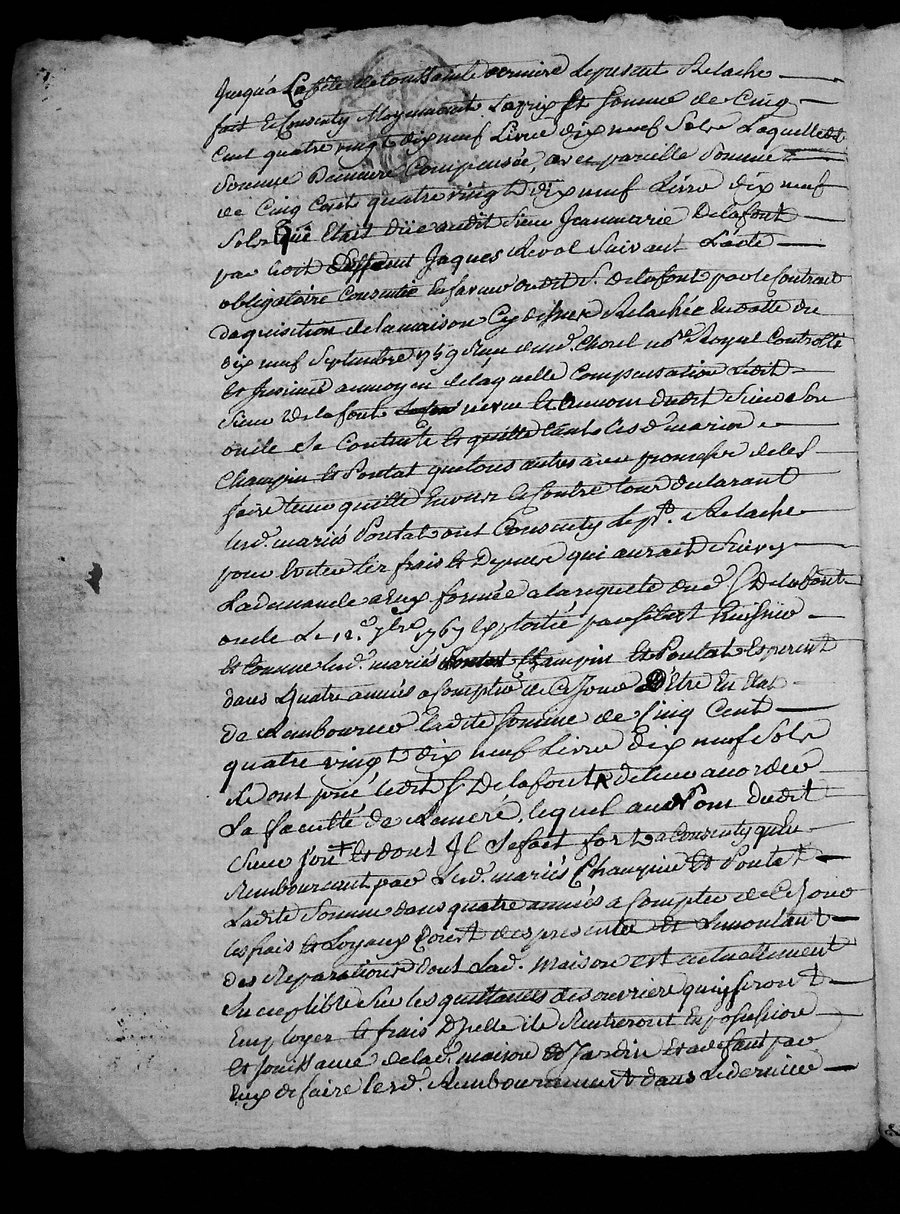 Jusqu'a La fete de toussainte derniere Le present Relache
fait Et Consenty Moyennant Le prix Et Somme de Cinq
Cent quatre vingt dix neuf Livre dix neuf Sols Laquelle dt
Somme Demeure Compensée, avec pareille Somme
de Cinq Cent quatre vingt dix neuf Livre dix neuf
Sols qui Etait düe audit Sieur Jeanmarie Delafont
par Jaques Suivant L'acte
obligatoire Consentie En faveur dudit S. delafont par le Contrat
daquisition de la maison Cy dessus Relachée En datte du
dix neuf Septembre 1759 Reçu de me. Chorel nore. Royal Controllé
Et Insinué au moyen de laquelle Compensation Ledit
Sieur Delafont En Et Aunom dudit Sieur Son
oncle Se Contente Et quitte tant Lesd. mariés
Champin Et Pontat que tous autres avec promesse de les
faire tenir quitte Envers Et Contre tous declarant
Lesd. mariés Pontat ont Consenty Le pt. Relache
pour Eviter les frais Et Depense qui aurait Suivy
La demande a Eux formée a la requete dud. S. Delafont
oncle Le 12e. 7bre 1767 Exploitée par Huissier
Et Comme Lesd. mariés Champin Et Pontat Esperent
dans Quatre années a Compter de Ce Jour D'Etre En Etat
de Rembourser ladite Somme de Cinq Cent
quatre vingt dix neuf Livre dix neuf Sols
Ils ont prié ledit S. Delafont de leur accorder
La faculté de Remeré, lequel au Nom dudit
Sieur Son Et dont Il Se fait fort a Consenty qu'En
Remboursant par Lesd. mariés Champin Et Pontat
Ladite Somme dans quatre années a Compter de Ce Jour
Les frais Et Loyaux Cout des presente Et Le montant
des Reparations dont Lad. maison Est actuellement
Suceptible Sur les quittances des ouvriers qui y Seront
Employer Et frais D'Icelle ils Rentreront En possession
Et Jouissance de lad. maison Et Jardin Et a defaut par
Eux de faire led. Remboursement dans Le dernier